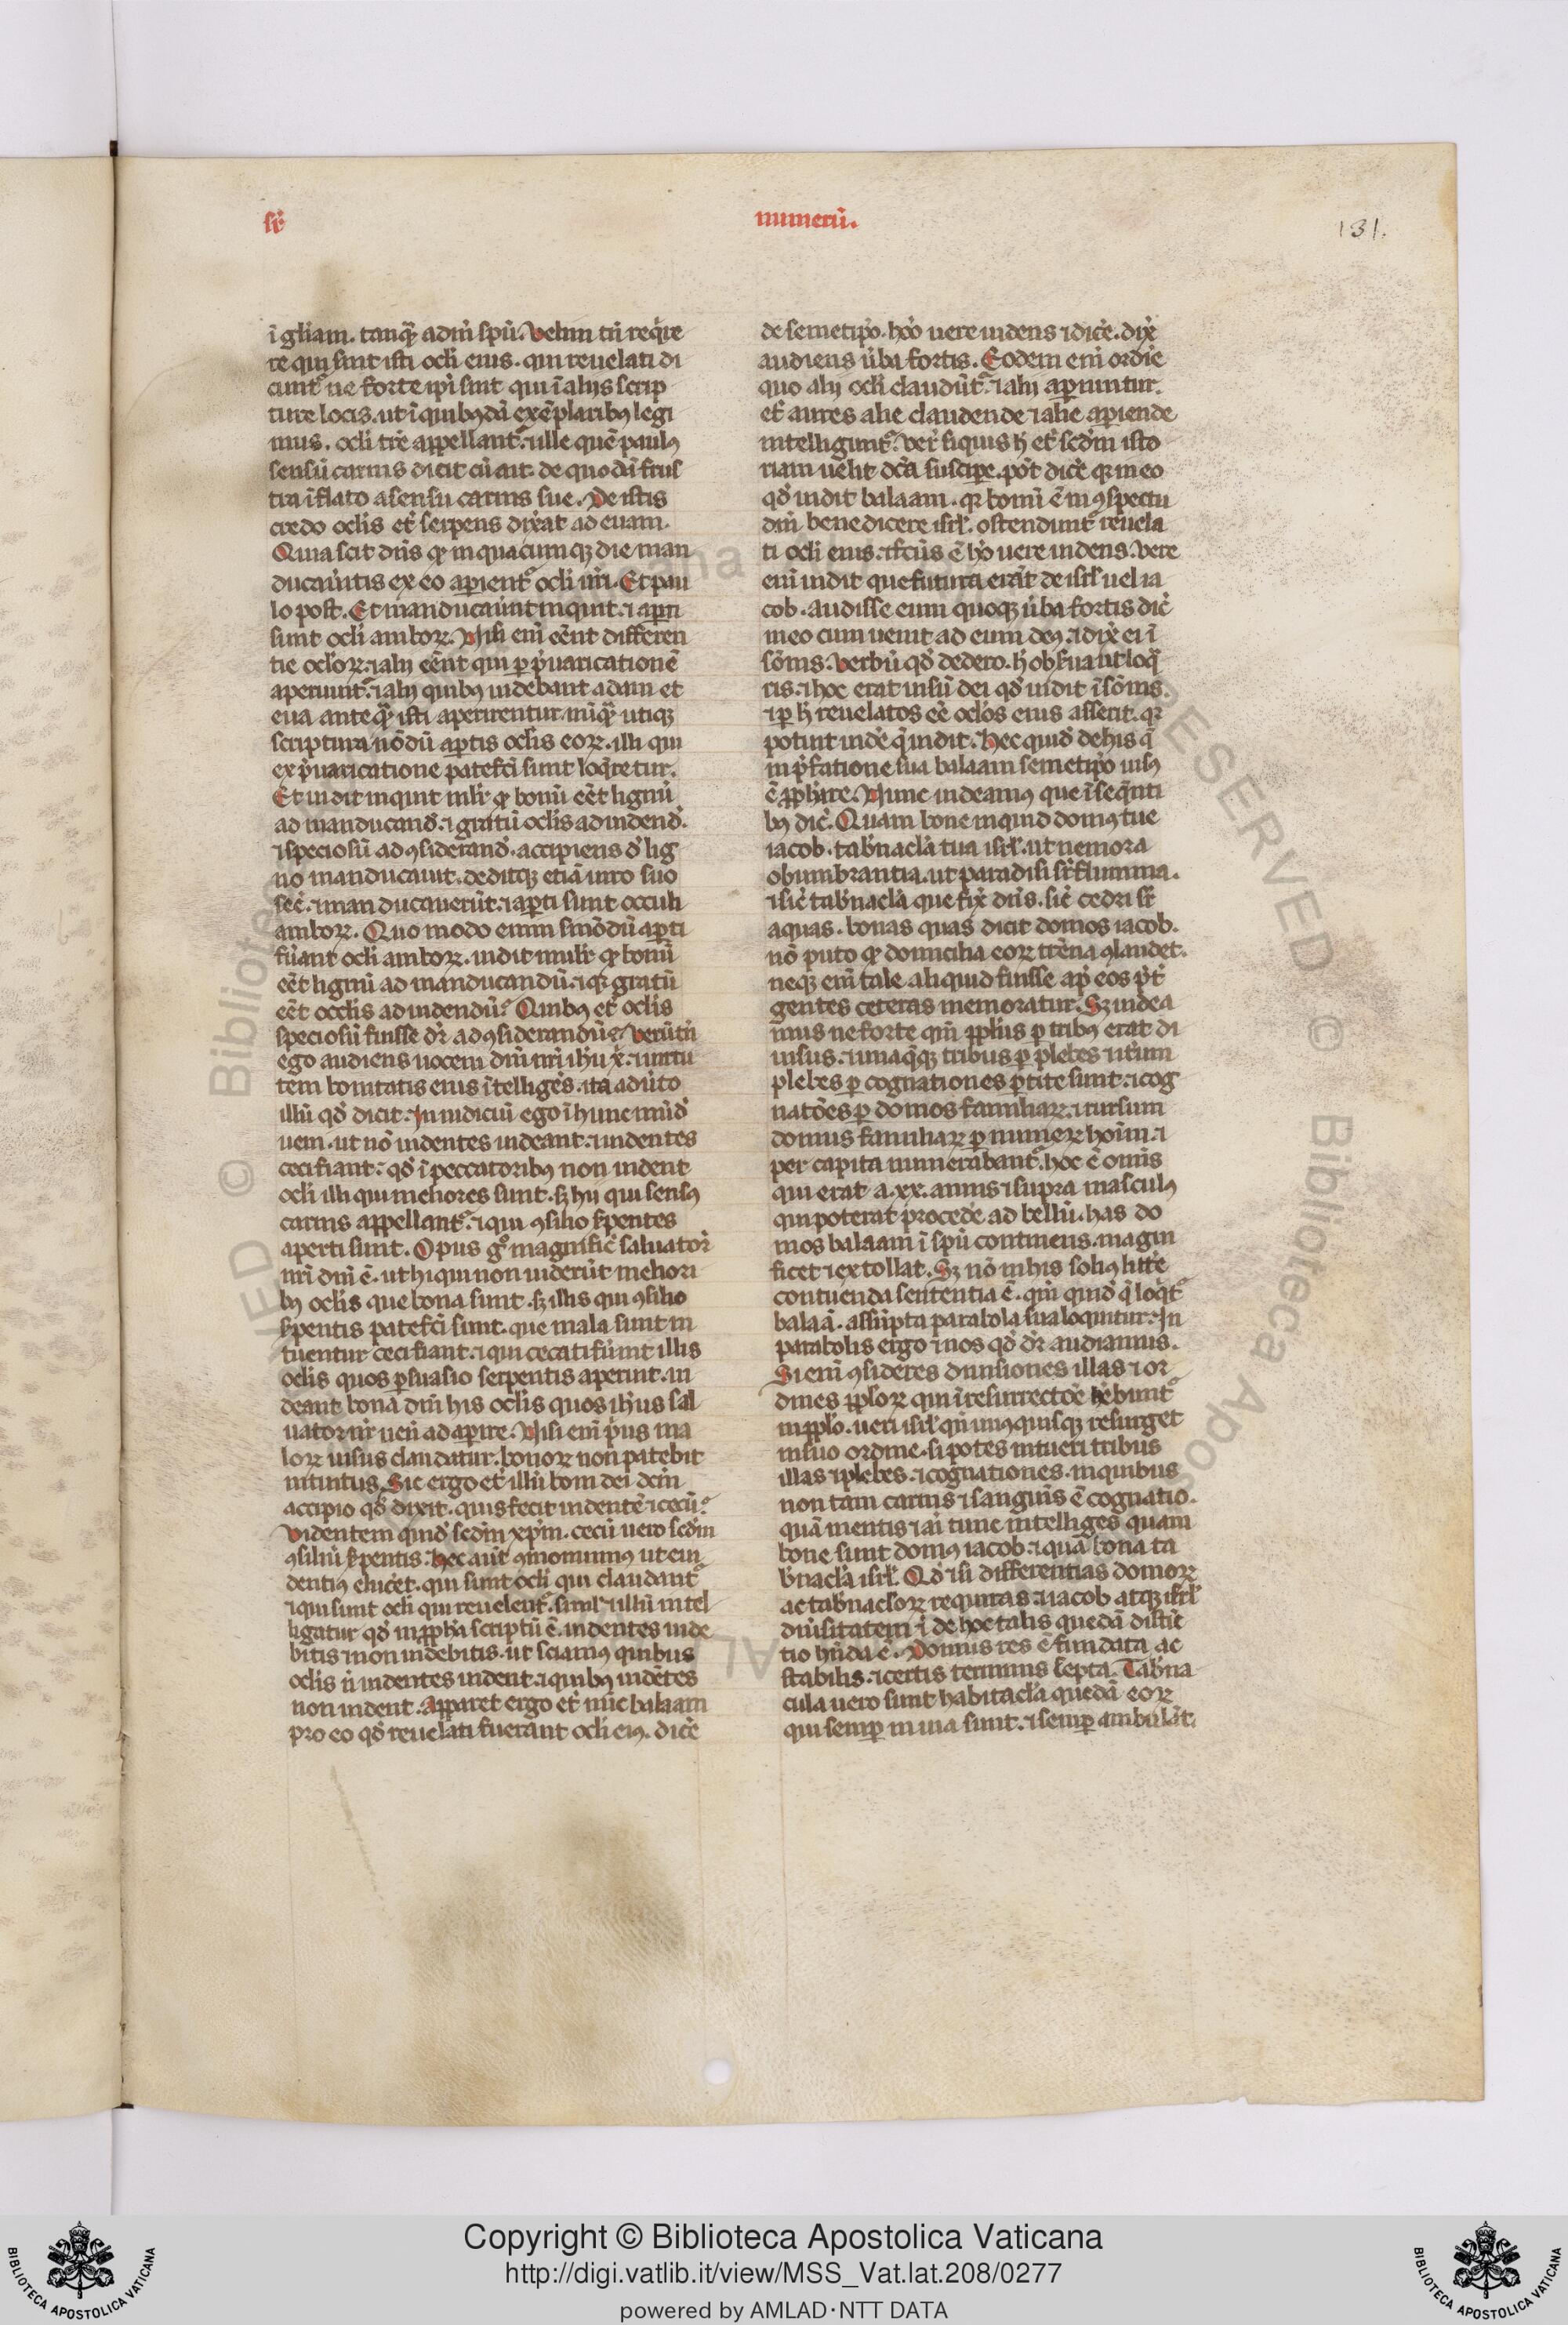 sr̄
numerū.
131.
ī gl̄iam. tanq̄ȝ adiu᷒ sp̄u. Velim tn̄ reqͥre
re qui sint isti ocl̄i eius. qui reuelati di
cuntᷣ ne forte ip̄i sint qui ī alijs scrip
ture locis. ut ī quibꝰdā exēplaribꝰ legi
mus. ocl̄i tr̄e appellantᷣ. ⁊ ille quē paulꝰ
sensū carnis dicit cū ait. de quodā frus
tra īflato a sensu carnis sue. De istis
credo oclis et̄ serpens dix̄at ad euam.
Quia scit dn̄s qȝ in quacumqȝ die man
ducau̾itis ex eo apientᷣ ocl̄i ur̄i. Et pau
lo post. Et manducau̾unt inquit. ⁊ aꝑti
sunt ocl̄i amboꝝ. Nisi eni᷒ eēnt differen
tie ocl̄oꝝ. ⁊ alij eēnt qui ꝑ p̾uaricationē
aperiuntᷣ. ⁊ alij quibꝰ uidebant adam et
eua anteq̄ȝ isti aperirentur. nūq̄ȝ utiqȝ
scriptura nōdū aꝑtis ocl̄is eoꝝ. illi qui
ex p̾uaricatione patefc̄i sunt loq̄retur.
Et uidit inquit mlr̄ qȝ bonū eēt lignū
ad manducand̾. ⁊ gratū oclis ad uidend̾.
⁊ speciosū ad ꝯsiderand̾. accipiens d̾ lig
no manducauit. deditqȝ etiā uiro suo
secū. ⁊ manducauerūt. ⁊ aꝑti sunt occuli
amboꝝ. Quo modo enim si nōdū aꝑti
fu̾ant ocl̄i amboꝝ. uidit mulr̄ qȝ bonū
eēt lignū ad manducandū. ⁊ qȝ gratū
eēt occlis ad uidendū? Quibꝰ et̄ oclis
speciosū fuisse dr̄ ad ꝯsiderandū? Verūtn̄
ego audiens uocem dn̄i nr̄i ih̄u x̄. ⁊ uirtu
tem bonitatis eius ītelligēs. ita adu̾to
illū qd̾ dicit. In iudiciū ego ī hunc mūd̾
ueni. ut nō uidentes uideant. ⁊ uidentes
ceci fiant. qd̾ ī peccatoribꝰ non uident
ocl̄i illi qui meliores sunt. sȝ hij qui sensꝰ
carnis appellantᷣ. ⁊ qui ꝯsilio s̾pentes
aperti sunt. Opus gͦ magnific̄ saluator̄
nr̄i dn̄i ē. ut hi qui non uiderūt meliori
bꝰ oclis que bona sunt. sȝ illis qui ꝯsilio
s̾pentis patefc̄i sunt. que mala sunt in
tuentur ceci fiant. ⁊ qui cecati fu̾int illis
oclis quos ꝑsuasio serpentis aperuit. ui
deant bona dn̄i his oclis quos ih̄us sal
uator nr̄ ueni᷒ adaꝑire. Nisi eni᷒ p̾us ma
loꝝ uisus claudatur. bonoꝝ non patebit
intuitus. Sic ergo et̄ illū bom dei dcm̄
accipio qd̾ dixit. quis fecit uidentē ⁊ cecū?
Videntem quid̾ scdm̄ xp̄m. cecū uero scdm̄
ꝯsiliū s̾pentis. Hec aūt ꝯmonimꝰ ut eui
dentiꝰ eluc̄et. qui sunt ocl̄i qui claudantᷣ
⁊ qui sunt ocl̄i qui reuelentᷣ. siml̄r ⁊ illū intel
ligatur qd̾ in ꝓph̄a scriptū ē. uidentes uide
bitis ⁊ non uidebitis. ut sciamꝰ quibus
oclis n̄ uidentes uident. ⁊ quibꝰ uidētes
non uident. Apparet ergo et̄ nūc balaam
pro eo qd̾ reuelati fuerant ocl̄i eiꝰ. dic̄e
de semetip̄o. ho᷒o uere uidens ⁊ dic̄e. dix̄
audiens u̾ba fortis. Eodem eni᷒ ordīe
quo alij ocl̄i claudūtᷣ. ⁊ alij aꝑiuntur.
et̄ aures alie claudende ⁊ alie aꝑiende
intelliguntᷣ. Ver̄ si quis h̄ et̄ scdm̄ isto
riam uelit dc̄a suscipe. pōt dic̄e qȝ in eo
qd̾ uidit balaam. qȝ bonū ē in ꝯspectu
dn̄i benedicere isrl̄. ostenduntᷣ reuela
ti ocl̄i eius. ⁊ fc̄us ē ho᷒ uere uidens. Vere
eni᷒ uidit que futura erāt de isrl̄ uel ia
cob. audisse eum quoqȝ u̾ba fortis dic̄
in eo cum uenit ad eum deꝰ. ⁊ dix̄ ei ī
sōnis. Verbū qd̾ dedero. h̄ obs̾ua ut loq̄
ris. ⁊ hoc erat uisū dei qd̾ uidit ī sōnis.
⁊ ꝑ h̄ reuelatos eē ocl̄os eius asserit. qȝ
potuit uid̾e q̄ uidit. Hec quid̾ de his q̄
in p̾fatione sua balaam semetip̄o uisꝰ
ē ꝓph̄are. Nunc uideamꝰ que ī seq̄nti
bꝰ dic̄. Quam bone inquid domꝰ tue
iacob. tab̾nacl̄a tua isrl̄. ut nemora
obumbrantia. ut paradisi sr̄ flumina.
⁊ sic̄ tab̾nacl̄a que fix̄ dn̄s. sic̄ cedri sr̄
aquas. bonas quas dicit domos iacob.
nō puto qȝ domicilia eoꝝ tr̄ena ꝯlaudet.
neqȝ eni᷒ tale aliquid fuisse ap̾ eos p̾t̾
gentes ceteras memoratur. Sȝ uidea
mus ne forte qm̄ ppl̄us ꝑ tribꝰ erat di
uisus. ⁊ unaq̄qȝ tribus ꝑ plebes ⁊ it̾um
plebes ꝑ cognationes ꝑtite sunt. ⁊ cog
natōes ꝑ domos familiaꝝ. ⁊ rursum
domus familiaꝝ ꝑ numeꝝ hoīm. ⁊
per capita numerabantᷣ. hoc ē omīs
qui erat a .xx. annis ⁊ supra masculꝰ
qui poterat proced̾e ad bellū. has do
mos balaam ī spū continens. magni
ficet ⁊ extollat. Sȝ nō in his solꝰ litt̾e
contuenda sententia ē. qm̄ quid̾ q̄ loq̄tᷣ
balaā. assūpta parabola sua loquitur. In
parabolis ergo ⁊ nos qd̾ dr̄ audiamus.
Si eni᷒ ꝯsideres diuisiones illas ⁊ or
dines ppl̄oꝝ qui ī resurrectōe h̾ebuntᷣ
in ppl̄o. ueri isrl̄ qn̄ unꝰquisqȝ resurget
in suo ordine. si potes intueri tribus
illas ⁊ plebes. ⁊ cognationes. in quibus
non tam carnis ⁊ sanguīs ē cognatio.
quā mentis ⁊ ai᷒ tunc intelliges quam
bone sunt domꝰ iacob. ⁊ quā bona ta
b̾nacl̄a isrl̄. Qd̾ ⁊ si differentias domoꝝ
ac tab̾nacloꝝ requiras. ⁊ iacob atqȝ isrl̄
diu̾sitatem ī de hoc talis quedā distīc
tio hn̄da ē. Domus res ē fundata ac
stabilis. ⁊ certis terminis septa. Tab̾na
cula uero sunt habitacl̄a quedā eoꝝ
qui semꝑ in uia sunt. ⁊ semꝑ ambulāt.
Copyright © Biblioteca Apostolica Vaticana
http://digi.vatlib.it/view/MSS_Vat.lat.208/0277
powered by AMLAD·NTT DATA
BIBLIOTECA APOSTOLICA VATICANA
BIBLIOTECA APOSTOLICA VATICANA